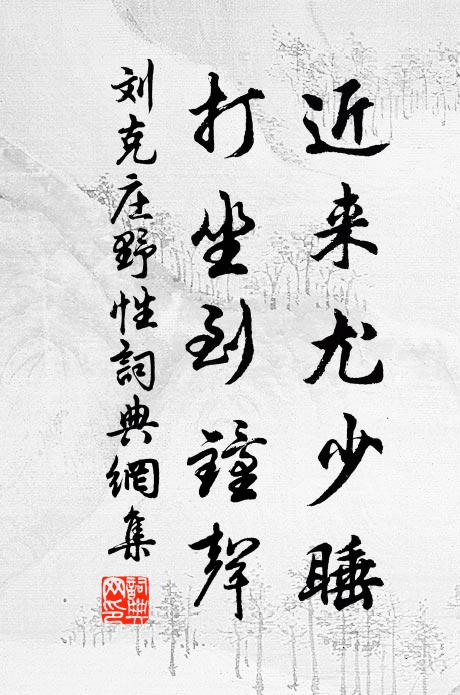 近来尤少睡
打坐到鐘聲
刘克庄野性詞典網集
詞典